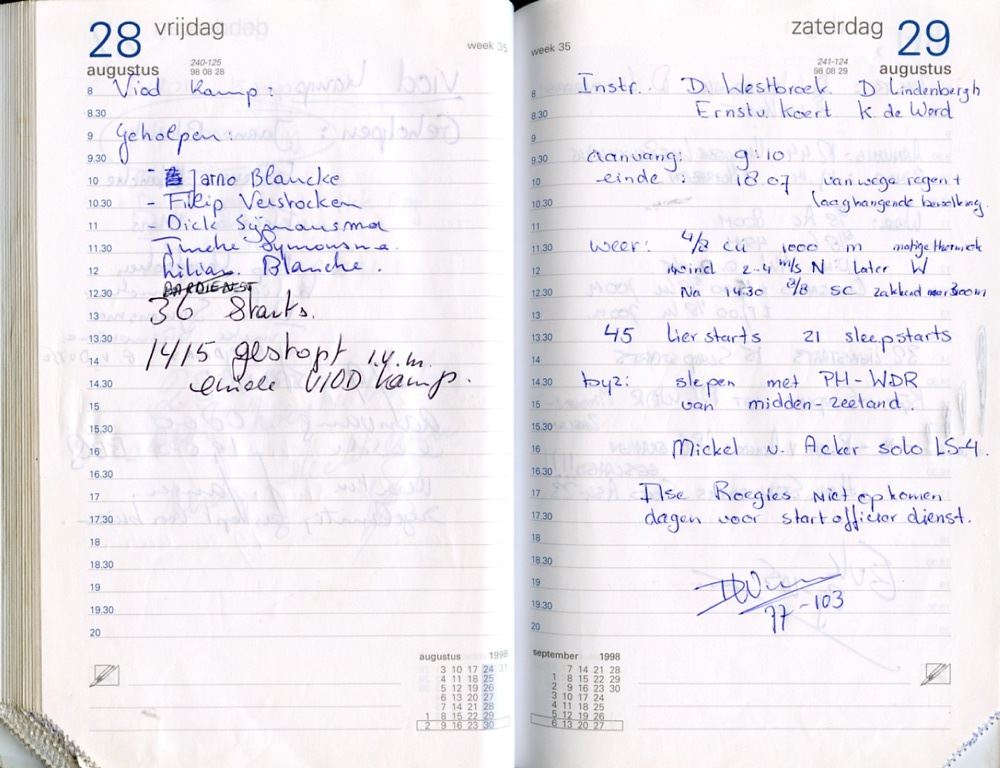 28 vrijdag
augustus
240-125
98 08 28
week 35
8 Viod kamp:
8.30
9 Geholpen:
9.30
10 - Jarno Blancke
10.30 - Filip Verstocken
11 - Dick Sijmansma
11.30 Symonsma.
12 Lilian. Blanche.
12.30 BARDIENST
13 36 Starts.
13.30
14 1415 gestopt i.v.m.
14.30 einde VIOD kamp.
15
15.30
16
16.30
17
17.30
18
18.30
19
19.30
20
augustus 1998
3 10 17 24 31
4 11 18 25
5 12 19 26
6 13 20 27
7 14 21 28
1 8 15 22 29
2 9 16 23 30
zaterdag 29
augustus
241-124
98 08 29
week 35
8 Instr. D. Westbroek. D Lindenbergh
8.30 Ernst v. Koert K. de Word
9
9.30 aanvang: 9:10
10 einde : 18 07 vanwege regen +
10.30 laaghangende bewolking.
11
11.30 weer: 4/8 cu 1000 m matige thermiek
12 wind 2-4 m/s N later W
12.30 Na 14.30 8/8 SC zakkend naar 300m
13
13.30 45 lierstarts 21 sleepstarts
14
14.30 byz: slepen met PH-WDR
15 van midden-zeeland.
15.30
16 Mickel v. Acker solo LS-4.
16.30
17 Ilse Roegies niet op komen
17.30 dagen voor startofficier dienst.
18
18.30
19
19.30 77-103
20
september 1998
7 14 21 28
1 8 15 22 29
2 9 16 23 30
3 10 17 24
4 11 18 25
5 12 19 26
6 13 20 27